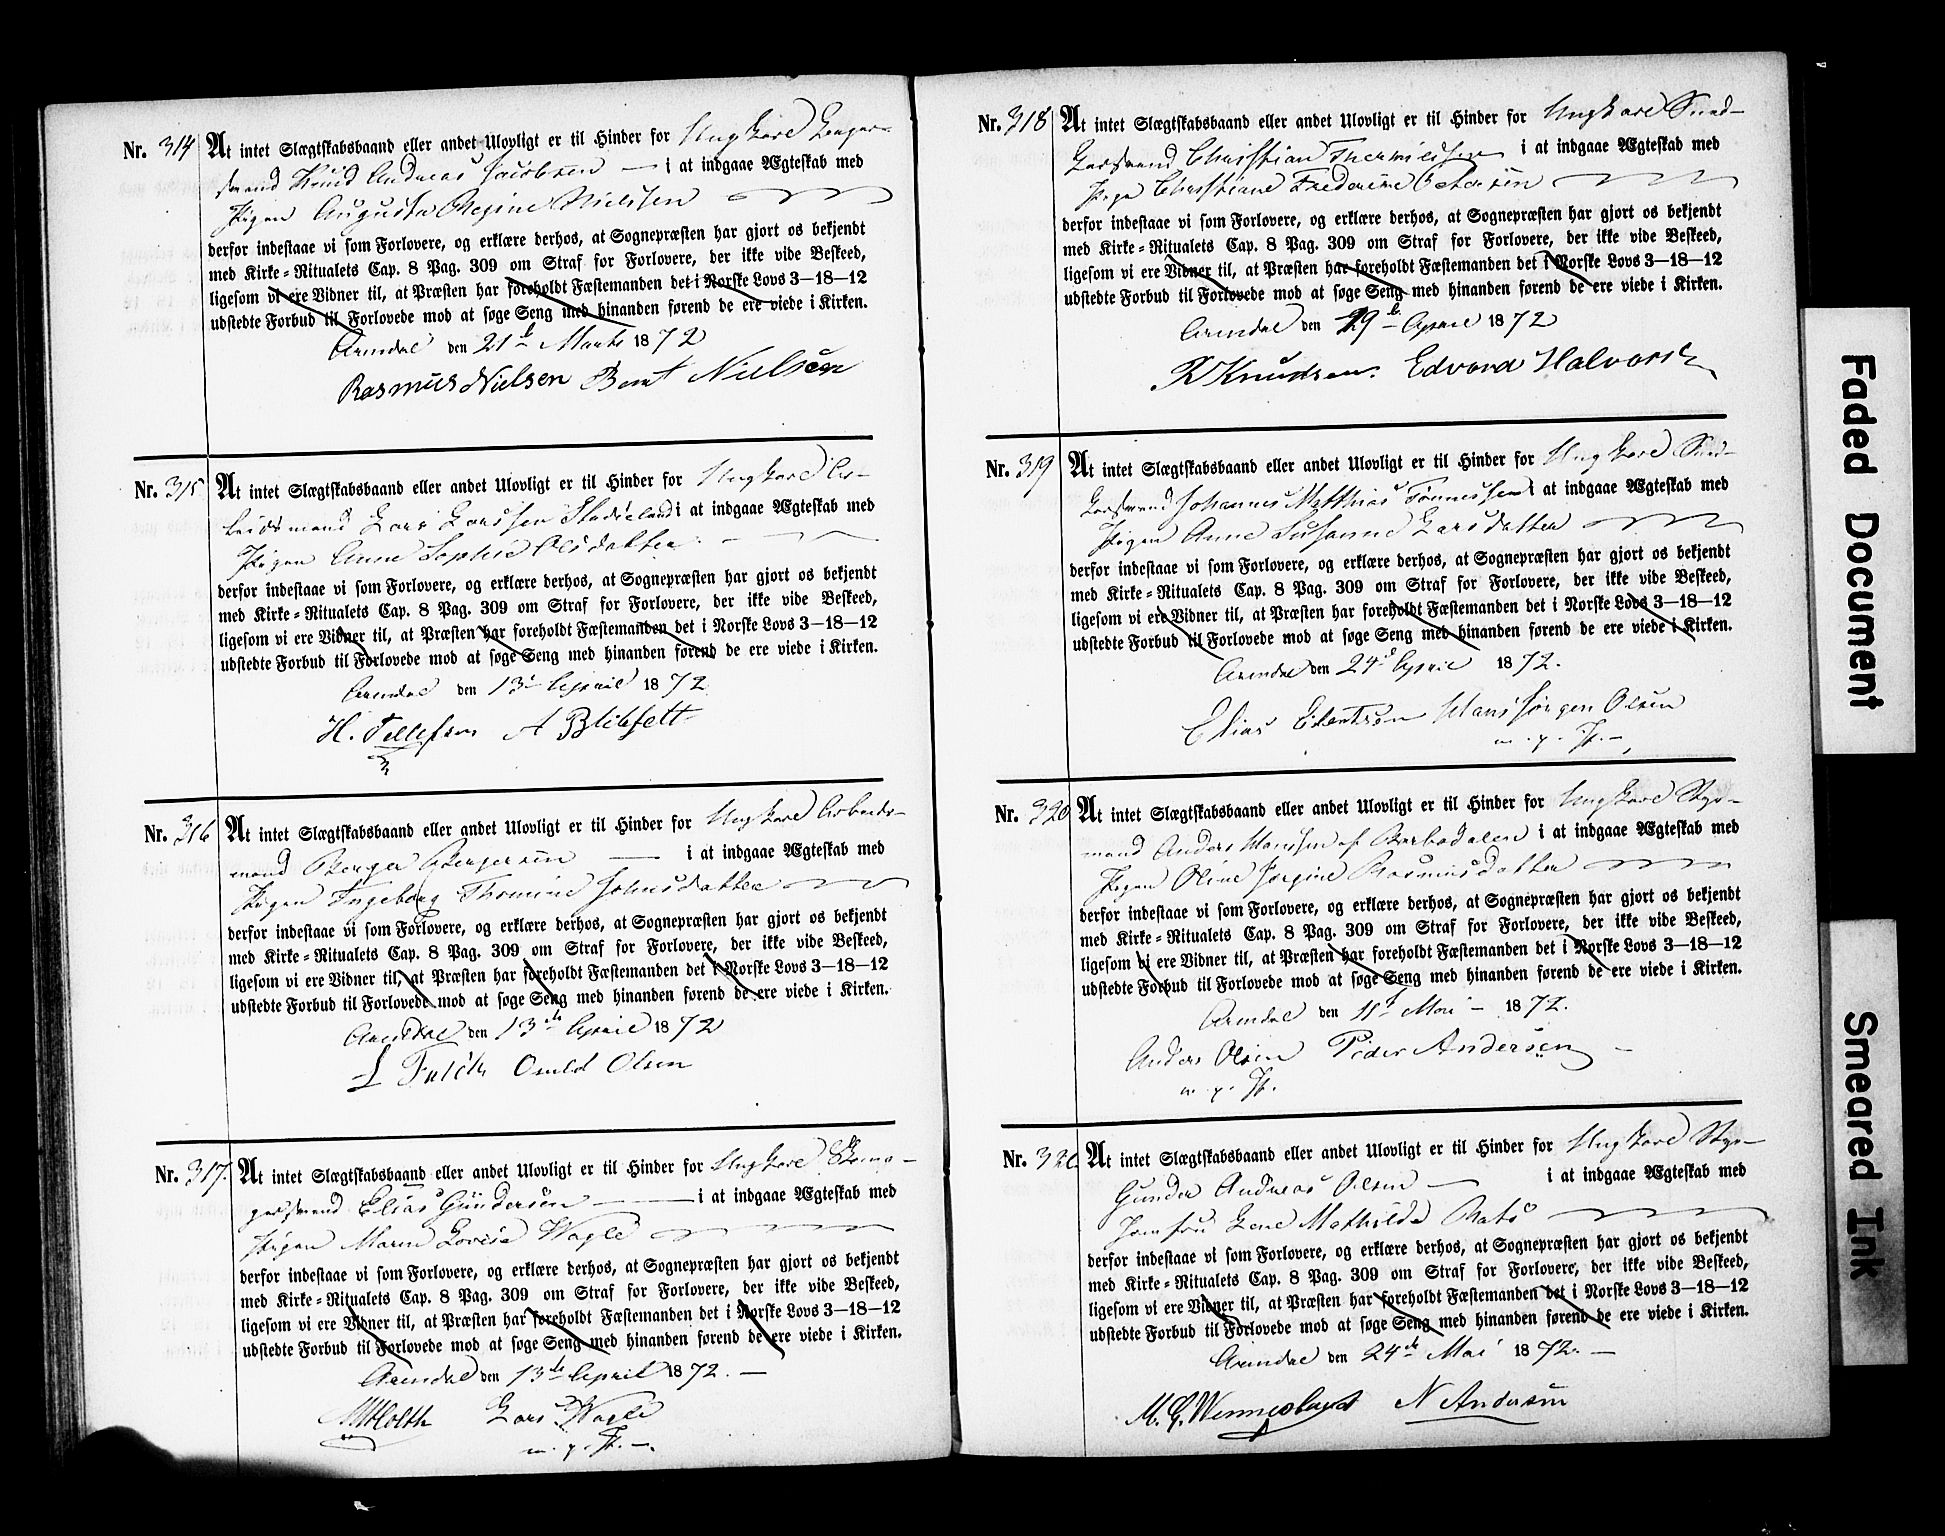 Nr. 314 At intet Slægtskabsbaand eller andet Ulovligt er til Hinder for Ungkarl
mand Knud Andreas Jacobsen — i at indgaae Ægteskab med
Pigen Augusta Regine Nielsen
derfor indestaae vi som Forlovere, og erklære derhos, at Sognepræsten har gjort os bekjendt
med Kirke-Ritualets Cap. 8 Pag. 309 om Straf for Forlovere, der ikke vide Beskeed,
ligesom vi ere Vidner til, at Præsten har foreholdt Fæstemanden det i Norske Lovs 3—18—12
udstedte Forbud til Forlovede mod at søge Seng med hinanden førend de ere viede i Kirken.
Arendal den 21d Marts 1872
Rasmus Nielsen Bernt Nielsen
Nr. 315 At intet Slægtskabsbaand eller andet Ulovligt er til Hinder for Ungkarl Ar-
beidsmand Lars Larssen i at indgaae Ægteskab med
Pigen Anne Sophie Olsdatter
derfor indestaae vi som Forlovere, og erklære derhos, at Sognepræsten har gjort os bekjendt
med Kirke-Ritualets Cap. 8 Pag. 309 om Straf for Forlovere, der ikke vide Beskeed,
ligesom vi ere Vidner til, at Præsten har foreholdt Fæstemanden det i Norske Lovs 3—18—12
udstedte Forbud til Forlovede mod at søge Seng med hinanden førend de ere viede i Kirken.
Arendal den 13d April 1872
H. Tellefsen A Blikfelt
Nr. 316 At intet Slægtskabsbaand eller andet Ulovligt er til Hinder for Ungkarl Arbeids-
mand Berger Bergersen — i at indgaae Ægteskab med
Pigen Ingeborg Thomine Johnsdatter
derfor indestaae vi som Forlovere, og erklære derhos, at Sognepræsten har gjort os bekjendt
med Kirke-Ritualets Cap. 8 Pag. 309 om Straf for Forlovere, der ikke vide Beskeed,
ligesom vi ere Vidner til, at Præsten har foreholdt Fæstemanden det i Norske Lovs 3—18—12
udstedte Forbud til Forlovede mod at søge Seng med hinanden førend de ere viede i Kirken.
Arendal den 13de April 1872
Falch Osuld Olsen
Nr. 317. At intet Slægtskabsbaand eller andet Ulovligt er til Hinder for Ungkarl
Elias Gundersen — i at indgaae Ægteskab med
Pigen Maren Lovise Wagle
derfor indestaae vi som Forlovere, og erklære derhos, at Sognepræsten har gjort os bekjendt
med Kirke-Ritualets Cap. 8 Pag. 309 om Straf for Forlovere, der ikke vide Beskeed,
ligesom vi ere Vidner til, at Præsten har foreholdt Fæstemanden det i Norske Lovs 3—18—12
udstedte Forbud til Forlovede mod at søge Seng med hinanden førend de ere viede i Kirken.
Arendal den 13de April 1872. —
Holth Lars Wagle
m. p. P. —.
Nr. 318 At intet Slægtskabsbaand eller andet Ulovligt er til Hinder for Ungkarl
Christian i at indgaae Ægteskab med
Pige Christiane Frederikke Petersen
derfor indestaae vi som Forlovere, og erklære derhos, at Sognepræsten har gjort os bekjendt
med Kirke-Ritualets Cap. 8 Pag. 309 om Straf for Forlovere, der ikke vide Beskeed,
ligesom vi ere Vidner til, at Præsten har foreholdt Fæstemanden det i Norske Lovs 3—18—12
udstedte Forbud til Forlovede mod at søge Seng med hinanden førend de ere viede i Kirken.
Arendal den 19de April 1872
Knudsen. Edvard Halvorsen
Nr. 319 At intet Slægtskabsbaand eller andet Ulovligt er til Hinder for Ungkarl
Johannes Matthias Tönnessen i at indgaae Ægteskab med
Pigen Anne Susanne Larsdatter
derfor indestaae vi som Forlovere, og erklære derhos, at Sognepræsten har gjort os bekjendt
med Kirke-Ritualets Cap. 8 Pag. 309 om Straf for Forlovere, der ikke vide Beskeed,
ligesom vi ere Vidner til, at Præsten har foreholdt Fæstemanden det i Norske Lovs 3—18—12
udstedte Forbud til Forlovede mod at søge Seng med hinanden førend de ere viede i Kirken.
Arendal den 24d April 1872.
Elias Eilertsön Hans Jörgen Olsen
m. p. P. —
Nr. 320 At intet Slægtskabsbaand eller andet Ulovligt er til Hinder for Ungkarl Styr-
mand Anders Hanssen af Barbodalen i at indgaae Ægteskab med
Pigen Oline Jorgine Rasmusdatter
derfor indestaae vi som Forlovere, og erklære derhos, at Sognepræsten har gjort os bekjendt
med Kirke-Ritualets Cap. 8 Pag. 309 om Straf for Forlovere, der ikke vide Beskeed,
ligesom vi ere Vidner til, at Præsten har foreholdt Fæstemanden det i Norske Lovs 3—18—12
udstedte Forbud til Forlovede mod at søge Seng med hinanden førend de ere viede i Kirken.
Arendal den 11t Mai — 1872.
Anders Olsen Peder Andersen —
m. p. P.
Nr. 321 At intet Slægtskabsbaand eller andet Ulovligt er til Hinder for Ungkarl Styr—
Gunder Andreas Olsen — i at indgaae Ægteskab med
Jomfru Lene Mathilde
derfor indestaae vi som Forlovere, og erklære derhos, at Sognepræsten har gjort os bekjendt
med Kirke-Ritualets Cap. 8 Pag. 309 om Straf for Forlovere, der ikke vide Beskeed,
ligesom vi ere Vidner til, at Præsten har foreholdt Fæstemanden det i Norske Lovs 3—18—12
udstedte Forbud til Forlovede mod at søge Seng med hinanden førend de ere viede i Kirken.
Arendal den 24de Mai 1872. —
M. G. Wennesland N Andersen
Faded Document
Smeared Ink